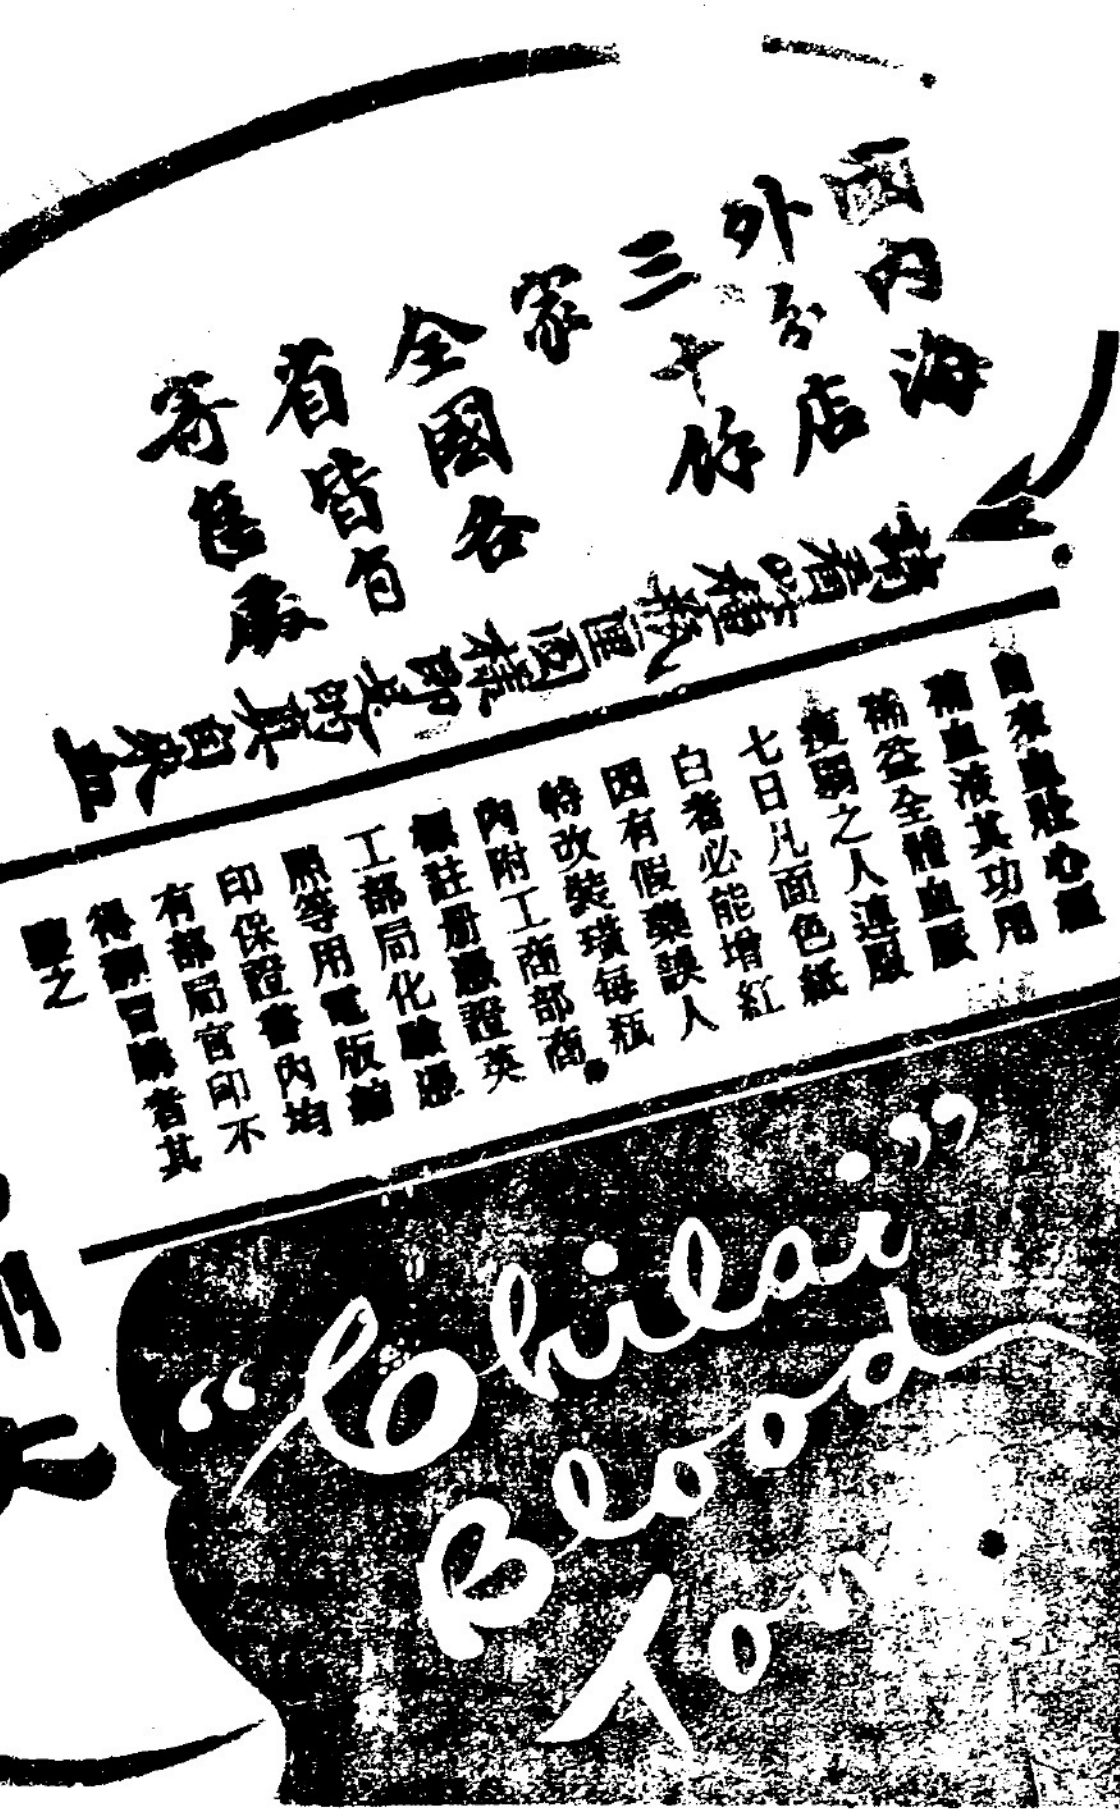 國內海
外分店
三十餘
家
全國各
省皆有
寄售處
請看此種瓶匣圖樣即是的真自來血
自來血壯心經
補血液其功用
補益全體血脈
瘦弱之人連服
七日凡面色紙
白者必能增紅
因有假藥誤人
特改裝璜每瓶
內附工商部商
標註册憑證英
工部局化驗憑
照等用電版縮
印保證書內均
有部局官印不
得冒購者其
鑒之
"Chilai"
Blood
Ton